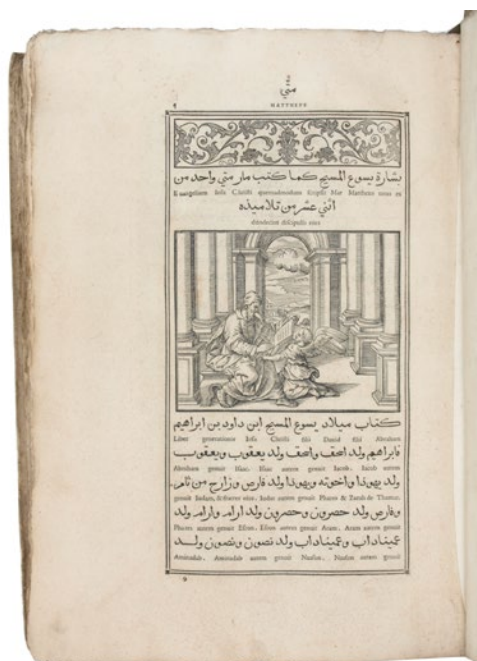 متى
MATTHEVS
بشارة يسوع المسيح كما كتب مار متي واحد من
Euangelium Iesu Christi quemadmodum scripsit Mar Matthæus unus ex
اثني عشر من تلاميذه
duodecim discipulis eius
كتاب ميلاد يسوع المسيح ابن داود بن ابراهيم
Liber generationis Iesu Christi filii David filii Abraham
فابراهيم ولد اسحق واسحق ولد يعقوب ويعقوب
Abraham genuit Isaac. Isaac autem genuit Iacob. Iacob autem
ولد يهودا واخوته ويهودا ولد فارص وزارح من ثامر
genuit Iudam, & fratres eius. Iudas autem genuit Phares & Zaram de Thamar.
وفارص ولد حصرون وحصرون ولد ارام وارام ولد
Phares autem genuit Esron. Esron autem genuit Aram. Aram autem genuit
عميناداب وعميناداب ولد نصون ونصون ولد
Aminadab. Aminadab autem genuit Naason. Naason autem genuit